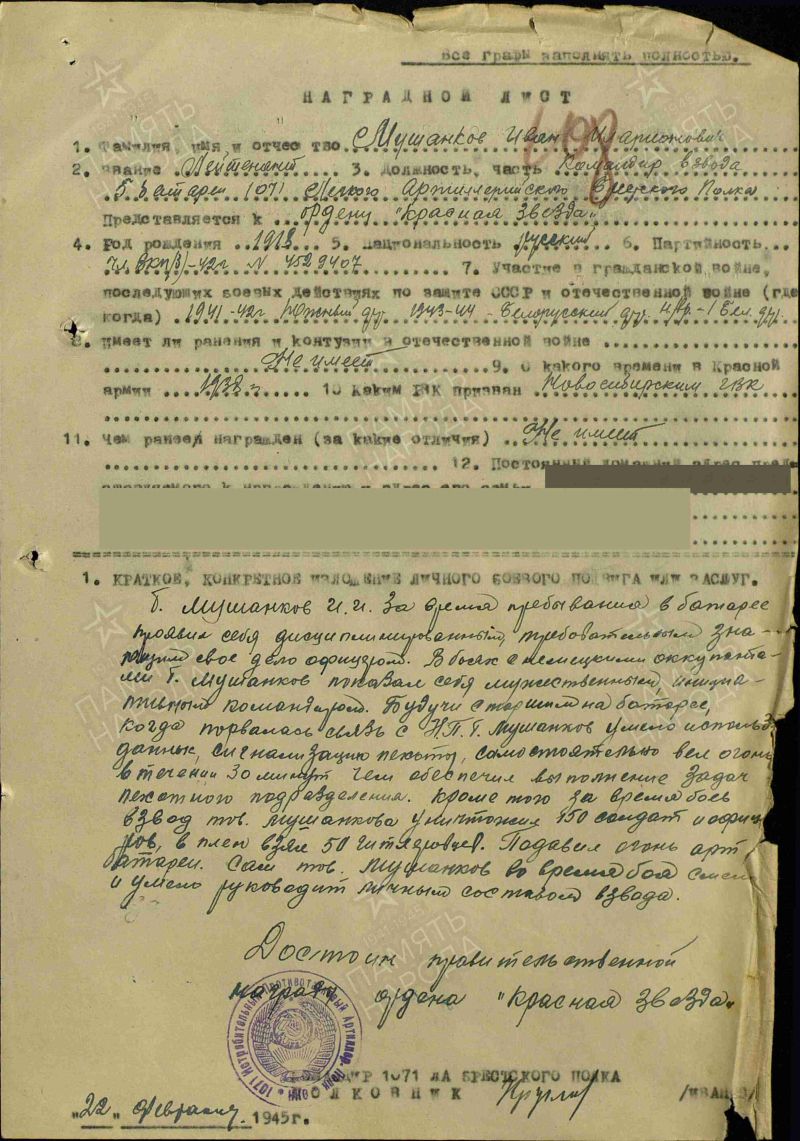 Все графы заполнять полностью.
НАГРАДНОЙ ЛИСТ
1. Фамилия, имя и отчество Мушанков Иван Иларионович
2. Звание Лейтенант 3. Должность, часть Командир взвода
5 батареи 1071 Легкого Артиллерийского Брестского Полка
Представляется к ордену "Красная Звезда"
4. Год рождения 1918 5. Национальность русский 6. Партийность
Чл ВКП(б)-42г N 4529407 7. Участие в гражданской войне,
последующих боевых действиях по защите СССР и отечественной войне (где
когда) 1941-42г Южный фр. 1943-44 - Белорусский фр. 1 Бел. фр.
8. имеет ли ранения и контузии в отечественной войне
Не имеет 9. С какого времени в Красной
армии 1938г. 10 каким РВК призван Новосибирским ГВК
11. Чем ранее награжден (за какие отличия) Не имеет
12. Постоянный домашний адрес пред
ставляемого к награждению и адрес его семьи
1. КРАТКОЕ, КОНКРЕТНОЕ ИЗЛОЖЕНИЕ ЛИЧНОГО БОЕВОГО ПОДВИГА ИЛИ ЗАСЛУГ.
т. Мушанков И.И. За время пребывания в батарее
проявил себя дисциплинированным, требовательным зна-
ющим свое дело офицером. В боях с немецкими оккупанта-
ми т. Мушанков показал себя мужественным, инициа-
тивным командиром. Будучи старшим на батарее,
когда порвалась связь с Н.П. т. Мушанков умело использ.
данные, сигнализацию пехоты, самостоятельно вел огонь
в течении 30 минут чем обеспечил выполнение задач
пехотного подразделения. Кроме того за время боев
взвод тов. Мушанкова уничтожил 150 солдат и офице
ров, в плен взял 50 гитлеровцев. Подавил огонь арт.
батареи. Сам тов. Мушанков во время боя смело
и умело руководит личным составом взвода.
Достоин правительственной
награды ордена "Красная Звезда".
1071 Истребительный Противотанковый Артиллер. Полк
КОМАНДИР 1071 ЛА БРЕСТСКОГО ПОЛКА
ПОЛКОВНИК
"22" Февраля 1945г.